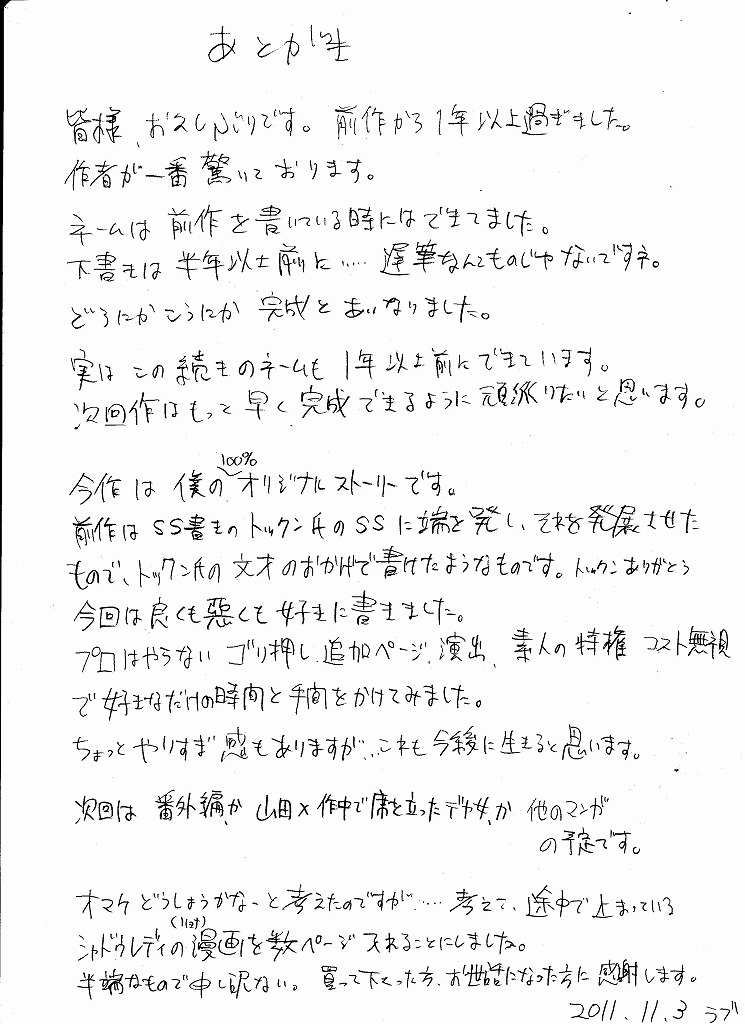 あとがき
皆様、お久しぶりです。前作から1年以上過ぎました。
作者が一番驚いております。
ネームは前作を書いている時にはできてました。
下書きは半年以上前に…… 遅筆なんてものじゃないですネ。
どうにかこうにか 完成とあいなりました。
実はこの続きのネームも1年以上前にできています。
次回作はもっと早く完成できるように頑張りたいと思います。
今作は僕の100%オリジナルストーリーです。
前作はSS書きのトックン氏のSSに端を発し、それを発展させた
もので、トックン氏の文才のおかげで書けたようなものです。トックンありがとう
今回は良くも悪くも好きに書きました。
プロはやらないゴリ押し、追加ページ、演出、素人の特権 コスト無視
で好きなだけの時間と手間をかけてみました。
ちょっとやりすぎ感もありますが、これも今後に生きると思います。
次回は 番外編か 山田×作中で席を立ったデカ女、か 他のマンガ
の予定です。
オマケどうしようかなーと考えたのですが…… 考えて、途中で止まっている
シャドウレディの(リョナ)漫画を数ページ入れることにしました。
半端なもので申し訳ない。買って下さった方、お世話になった方に感謝します。
2011.11.3 ラブ